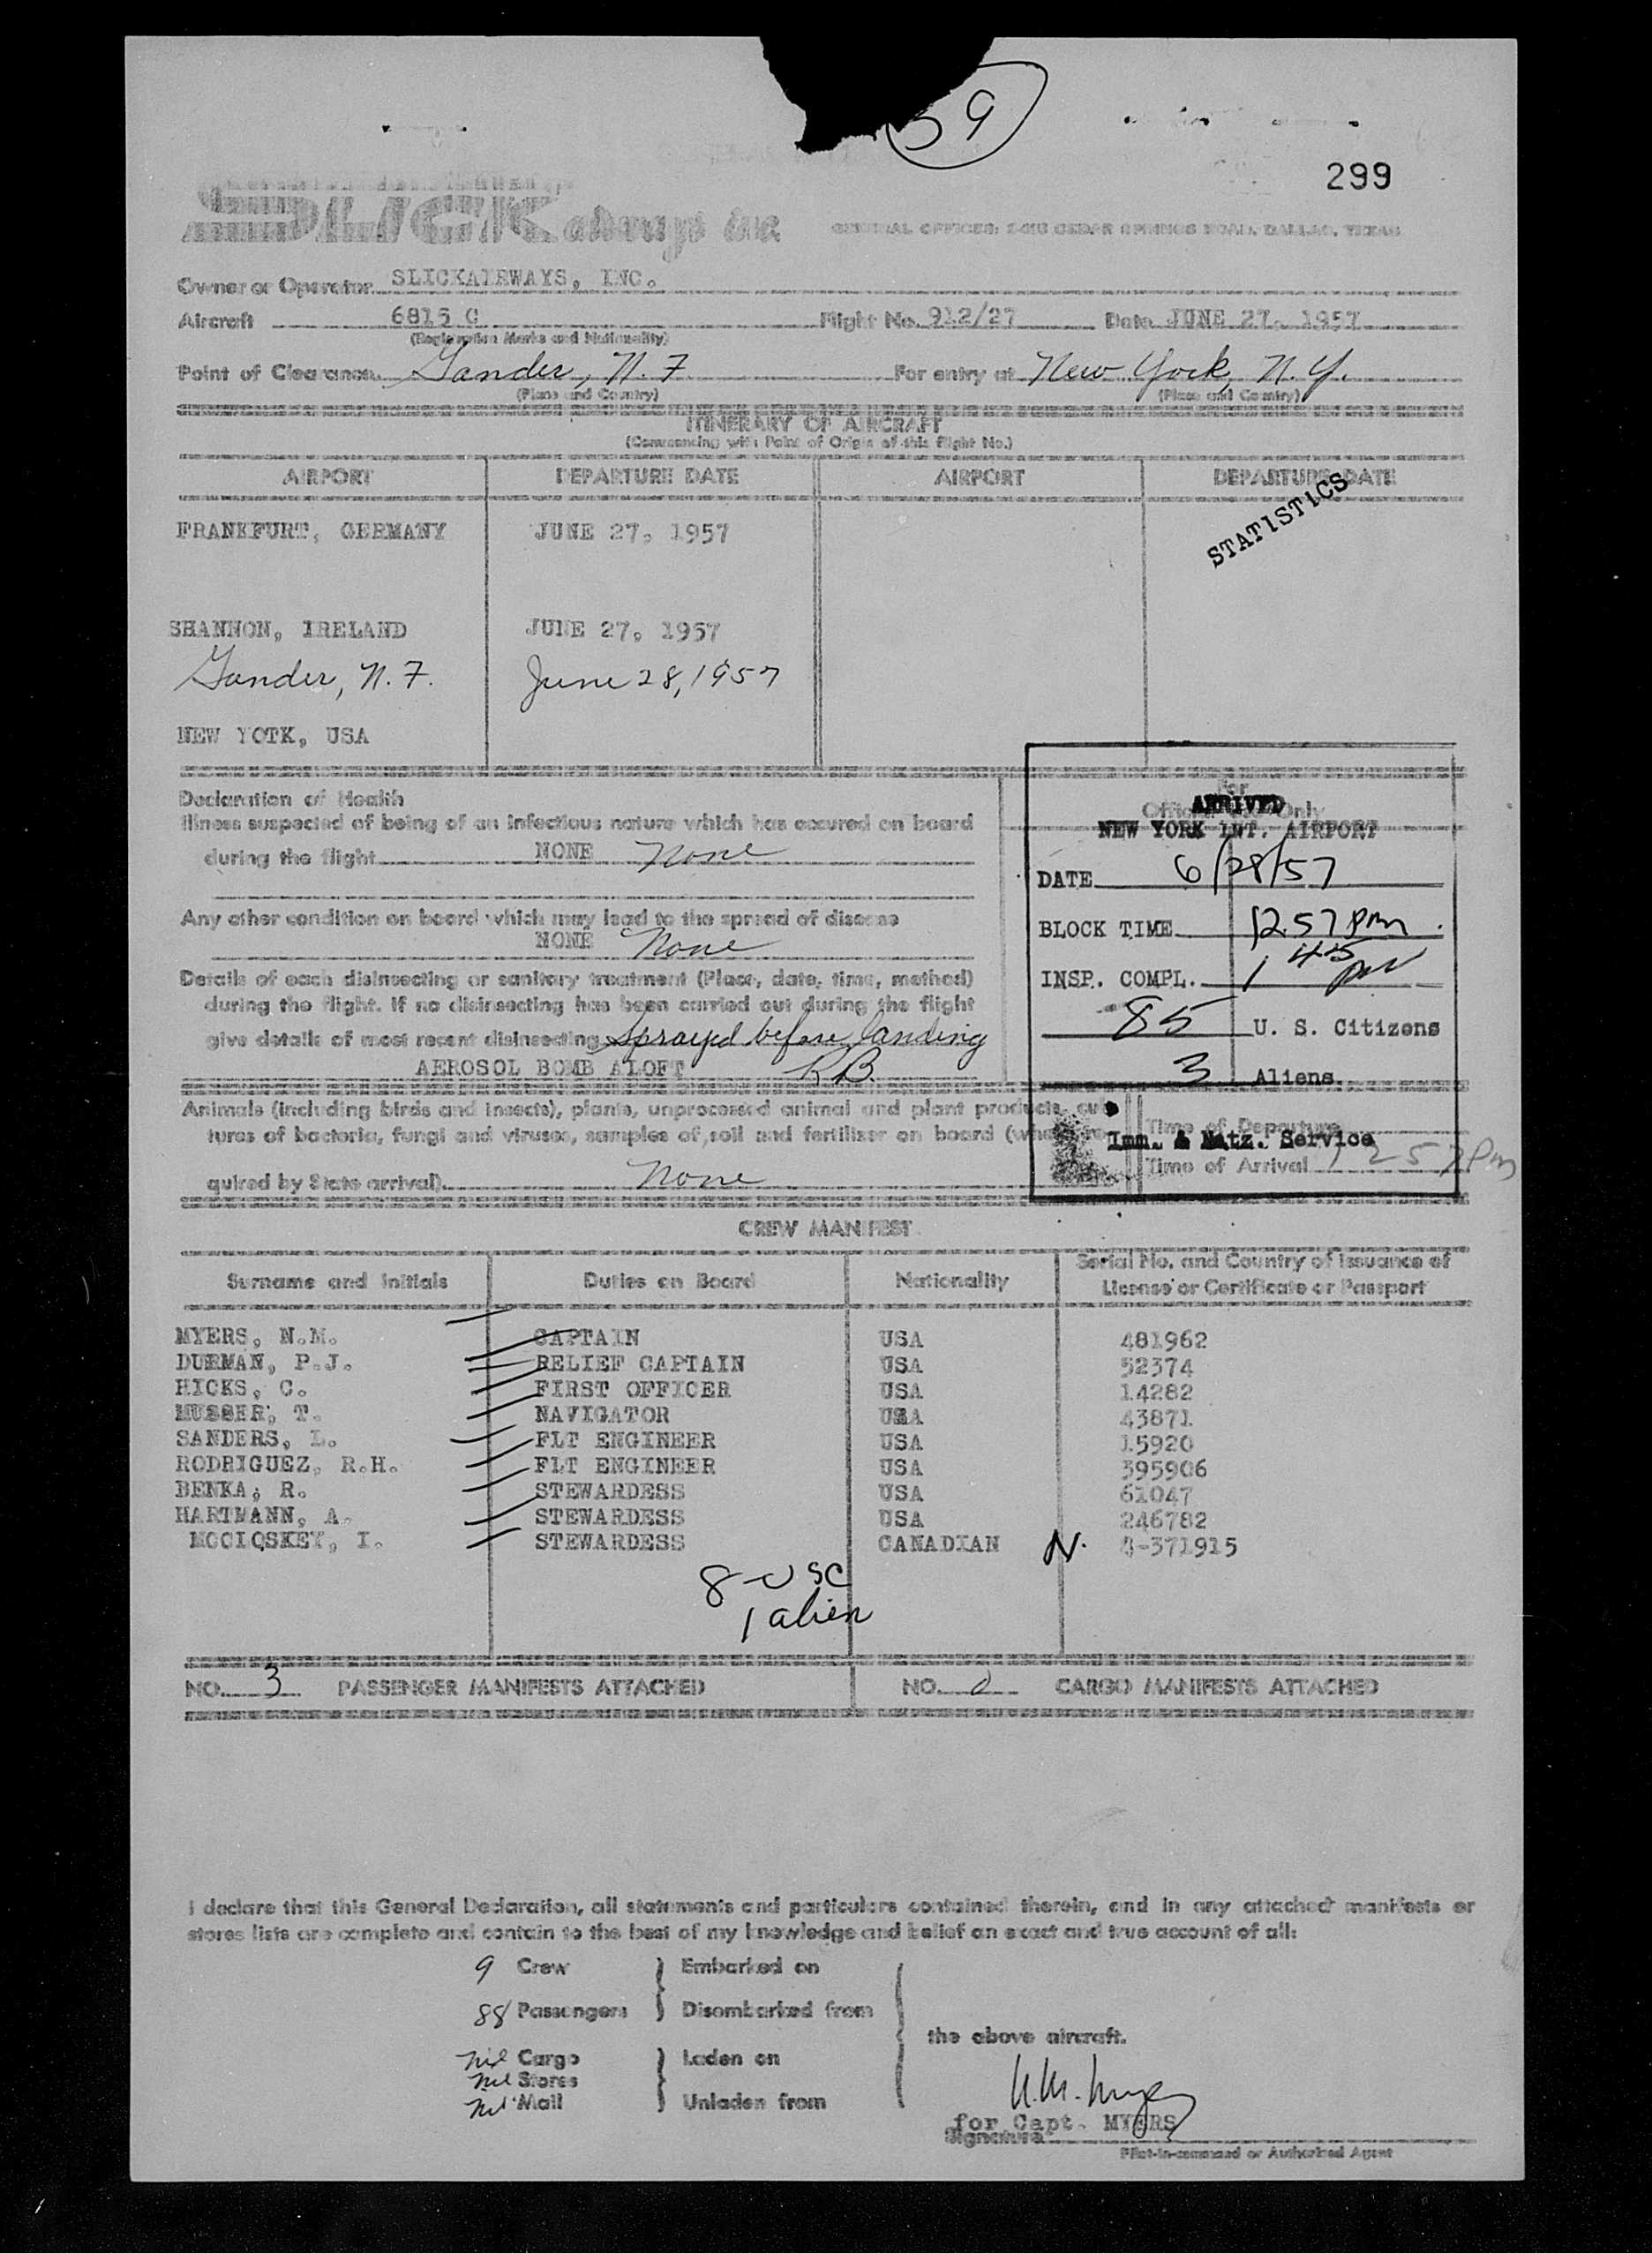 59
299
SLICK airways inc
GENERAL OFFICES: CEDAR SPRINGS ROAD, DALLAS, TEXAS
Owner or Operator SLICKAIRWAYS, INC.
Aircraft 6815 C Flight No. 912/27 Date JUNE 27, 1957
(Registration Marks and Nationality)
Point of Clearance Gander, N.F For entry at New York, N.Y.
(Place and Country) (Place and Country)
ITINERARY OF AIRCRAFT
(Commencing with Point of Origin of this flight No.)
AIRPORT DEPARTURE DATE AIRPORT DEPARTURE DATE
STATISTICS
FRANKFURT, GERMANY JUNE 27, 1957
SHANNON, IRELAND JUNE 27, 1957
Gander, N.F. June 28, 1957
NEW YOTK, USA
Declaration of Health
Illness suspected of being of an infectious nature which has occured on board
during the flight NONE None
Any other condition on board which may lead to the spread of disease
NONE None
Details of each disinsecting or sanitary treatment (Place, date, time, method)
during the flight. If no disinsecting has been carried out during the flight
give details of most recent disinsecting Sprayed before landing
AEROSOL BOMB ALOFT RB.
For
Official Use Only
ARRIVED
NEW YORK INT. AIRPORT
DATE 6/28/57
BLOCK TIME 1257 pm
INSP. COMPL. 1 45 pm
85 U. S. Citizens
3 Aliens
Imm. & Natz. Service
Time of Departure
Time of Arrival 1257 Pm
Animals (including birds and insects), plants, unprocessed animal and plant products, cul-
tures of bacteria, fungi and viruses, samples of soil and fertilizer on board (when re-
quired by State arrival) None
CREW MANIFEST
Surname and Initials Duties on Board Nationality Serial No. and Country of Issuance of
License or Certificate or Passport
MYERS, N.M. CAPTAIN USA 481962
DURMAN, P.J. RELIEF CAPTAIN USA 52374
HICKS, C. FIRST OFFICER USA 14282
MUSSER, T. NAVIGATOR USA 43871
SANDERS, L. FLT ENGINEER USA 15920
RODRIGUEZ, R.H. FLT ENGINEER USA 395906
BENKA, R. STEWARDESS USA 61047
HARTMANN, A. STEWARDESS USA 246782
MCCLOSKEY, I. STEWARDESS CANADIAN N. 4-371915
8-USC
1 alien
NO. 3 PASSENGER MANIFESTS ATTACHED NO. CARGO MANIFESTS ATTACHED
I declare that this General Declaration, all statements and particulars contained therein, and in any attached manifests or
stores lists are complete and contain to the best of my knowledge and belief an exact and true account of all:
9 Crew Embarked on
88 Passengers Disembarked from
the above aircraft.
nil Cargo Laden on
nil Stores
nil Mail Unladen from
N.M. Myers
for Capt. MYERS
Signature
Pilot-in-command or Authorized Agent